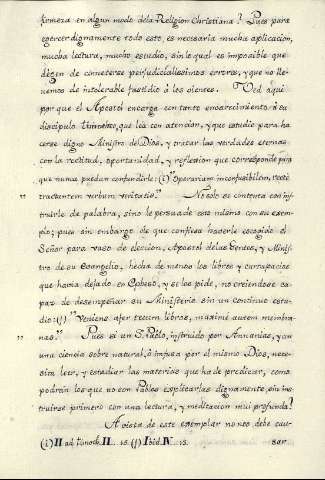 firmeza en algun modo dela Religion Christiana? Pues para
egercer dignamente todo esto, es necesaria mucha aplicacion,
mucha lectura, mucho estudio, sin lo qual es imposible que
dejen de cometerse perjudicialissimos errores, y que no lle-
nemos de intolerable fastidio á los oientes. Ved aqui
por que el Apostol encarga con tanto encarecimiento á su
discipulo Timotheo, que lea con atencion, y que estudie para ha
cerse digno Ministro de Dios, y tratar las verdades eternas
con la rectitud, oportunidad, y reflexion que corresponde para
que nunca puedan confundirle: (i) "Operarium inconfusibilem, recté
" tractantem verbum veritatis." No solo se contenta con ins
truirle de palabra, sino le persuade esto mismo con su exem-
plo; pues sin embargo de que confiesa haverle escogido el
Señor para vaso de eleccion, Apostol delas Gentes, y Minis
tro de su Evangelio, hecha de menos los libros y cartapacios
que havia dejado en Epheso, y se los pide, no creiendose ca-
paz de desempeñar su Ministerio sin un continuo estu-
dio: (j) "Veniens afer tecum libros, maxime autem membra-
" nas." Pues si un S. Pablo, instruido por Annanias, y con
una ciencia sobre natural, é infusa por el mismo Dios, nece-
sita leer, y estudiar las materias que ha de predicar, como
podrán los que no son Pablos explicarlas dignamente, sin ins
truirse primero con una lectura, y meditacion mui profunda?
A vista de este exemplar no nos debe cau-
(i) II ad Timoth. II. 15. (j) Ibid. IV. 13. sar